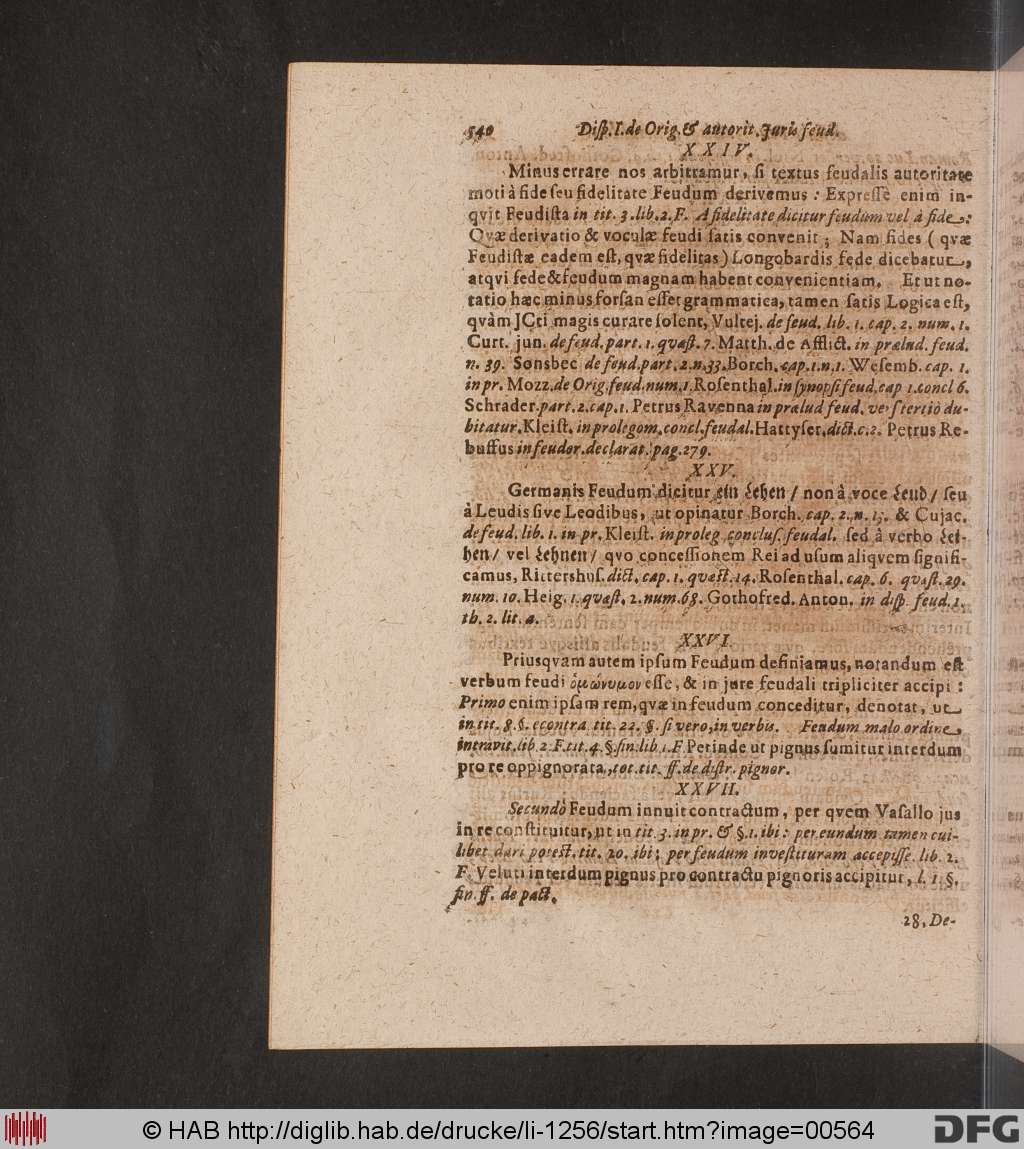 540 Disp. I. de Orig. & autorit. Juris feud.
XXIV.
Minus errare nos arbitramur, si textus feudalis autoritate
moti à fide seu fidelitate Feudum derivemus: Expressè enim in-
qvit Feudista in tit. 3. lib. 2. F. A fidelitate dicitur feudum vel à fide:
Qvæ derivatio & voculæ feudi satis convenit; Nam fides (qvæ
Feudistæ eadem est, qvæ fidelitas) Longobardis fede dicebatur,
atqvi fede & feudum magnam habent convenientiam. Et ut no-
tatio hæc minus forsan esset grammatica, tamen satis Logica est,
qvàm JCti magis curare solent, Vultej. de feud. lib. 1. cap. 2. num. 1.
Curt. jun. de feud. part. 1. qvæst. 7. Matth. de Afflict. in prælud. feud.
n. 39. Sonsbec de feud. part. 2. n. 33. Borch. cap. 1. n. 1. Wesemb. cap. 1.
in pr. Mozz. de Orig. feud. num. 1. Rosenthal. in synopsi feud. cap 1. concl 6.
Schrader. part. 2. cap. 1. Petrus Ravenna in prælud feud. vers tertiò du-
bitatur. Kleist. in prolegom. concl. feudal. Hattyser. dict. c. 2. Petrus Re-
buffus in feudor. declarat. pag. 279.
XXV.
Germanis Feudum dicitur ein Lehen / non à voce Leud / seu
à Leudis sive Leodibus, ut opinatur Borch. cap. 2. n. 15. & Cujac.
de feud. lib. 1. in pr. Kleist. in proleg concluf. feudal. sed à verbo Lei-
hen / vel Lehnen / qvo concessionem Rei ad usum aliqvem signifi-
camus, Rittershus. dict. cap. 1. qvæst. 14. Rosenthal. cap. 6. qvæst. 29.
num. 10. Heig. 1. qvæst. 2. num. 68. Gothofred. Anton. in disp feud. 1.
th. 2. lit. a.
XXVI.
Priusqvam autem ipsum Feudum definiamus, notandum est
verbum feudi ὁμώνυμον esse, & in jure feudali tripliciter accipi:
Primo enim ipsam rem, qvæ in feudum conceditur, denotat, ut
in tit. 8. §. econtra tit. 22. §. si vero, in verbis. Feudum malo ordine
intravit. lib 2. F. tit. 4. §. fin. lib. 1. F. Perinde ut pignus sumitur interdum
pro re oppignorata, tot. tit. ff. de distr. pignor.
XXVII.
Secundò Feudum innuit contractum, per qvem Vasallo jus
in re constituitur, ut in tit. 3. in pr. & §. 1. ibi: per eundum tamen cui-
libet dari potest. tit. 20. ibi; per feudum investituram accepisse. lib. 2.
F. Veluti interdum pignus pro contractu pignoris accipitur, l. 1. §.
fin. ff. de pact.
28. De-
© HAB http://diglib.hab.de/drucke/li-1256/start.htm?image=00564
DFG